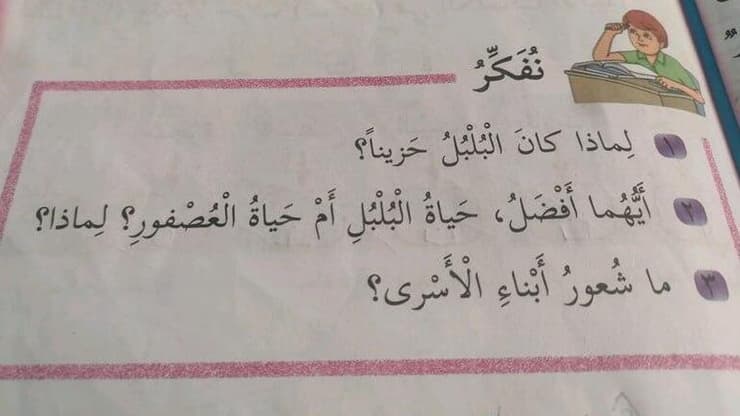 نُفَكِّرُ
١ لِماذا كانَ الْبُلْبُلُ حَزيناً؟
٢ أَيُّهُما أَفْضَلُ، حَياةُ الْبُلْبُلِ أَمْ حَياةُ الْعُصْفورِ؟ لِماذا؟
٣ ما شُعورُ أَبْناءِ الْأَسْرى؟